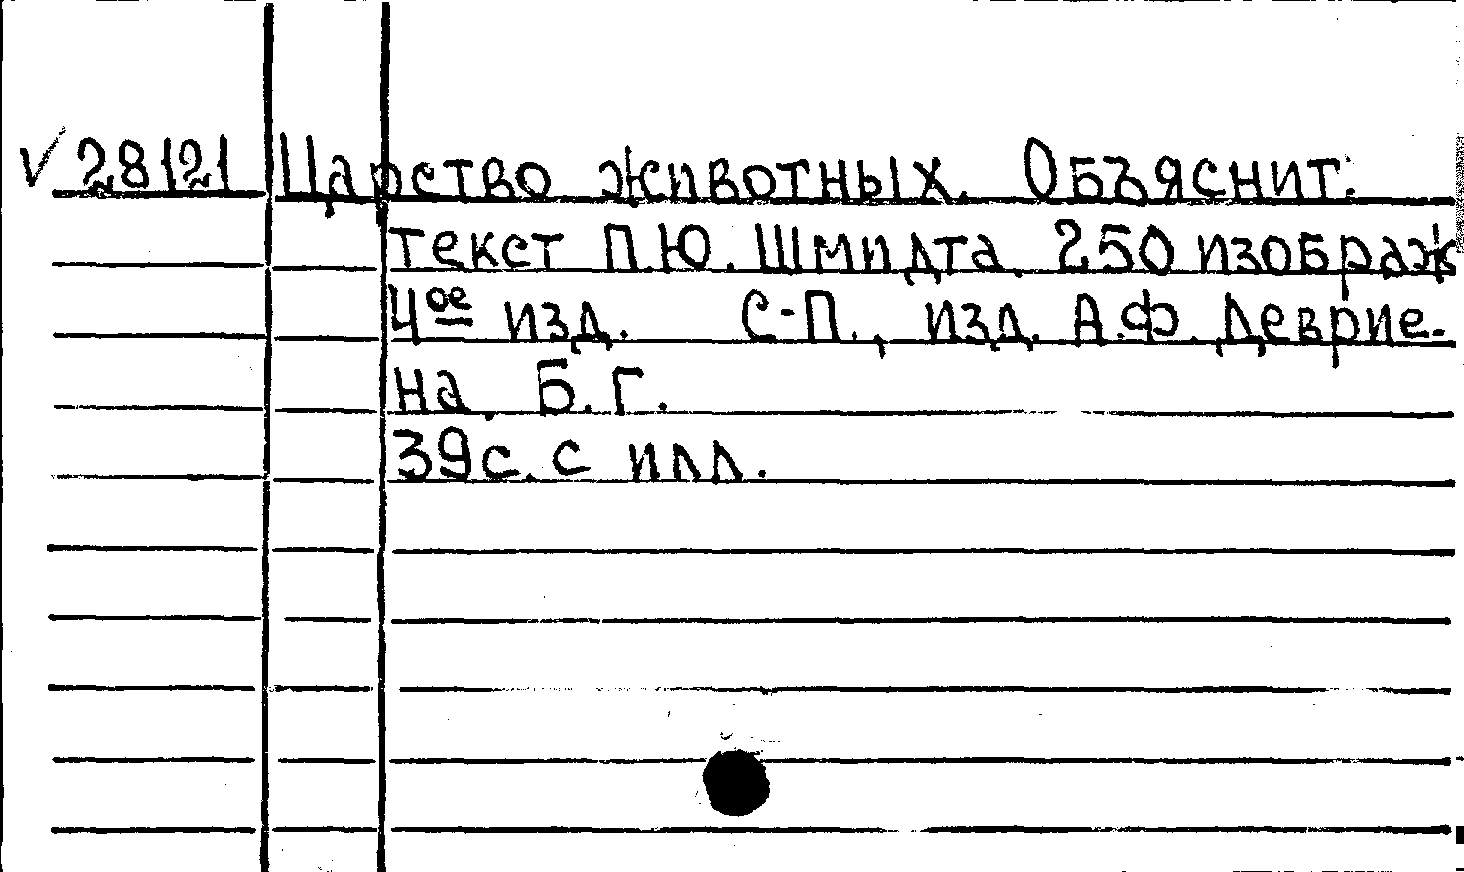 √ 28121 Царство животных. Объяснит.
текст П.Ю. Шмидта. 250 изображ
4ое изд. С-П., изд. А.Ф. Деврие-
на. Б.г.
39с. с илл.